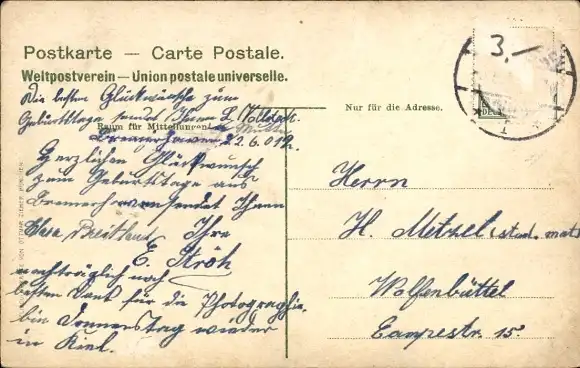 Postkarte — Carte Postale.
Weltpostverein — Union postale universelle.
3,—
Die besten Glückwünsche zum
Geburtstage sendet Ihnen L.
Raum für Mitteilungen
Nur für die Adresse.
Bremerhaven 22.6.
Herzlichen Glückwunsch
zum Geburtstage aus
Bremerhaven sendet Ihnen
Ihre
E. Ströh
nachträglich noch
besten Dank für die Photographie.
bin Donnerstag wieder
in Kiel.
Herrn
H. Metzel (stud. math
Wolfenbüttel
Campestr. 15